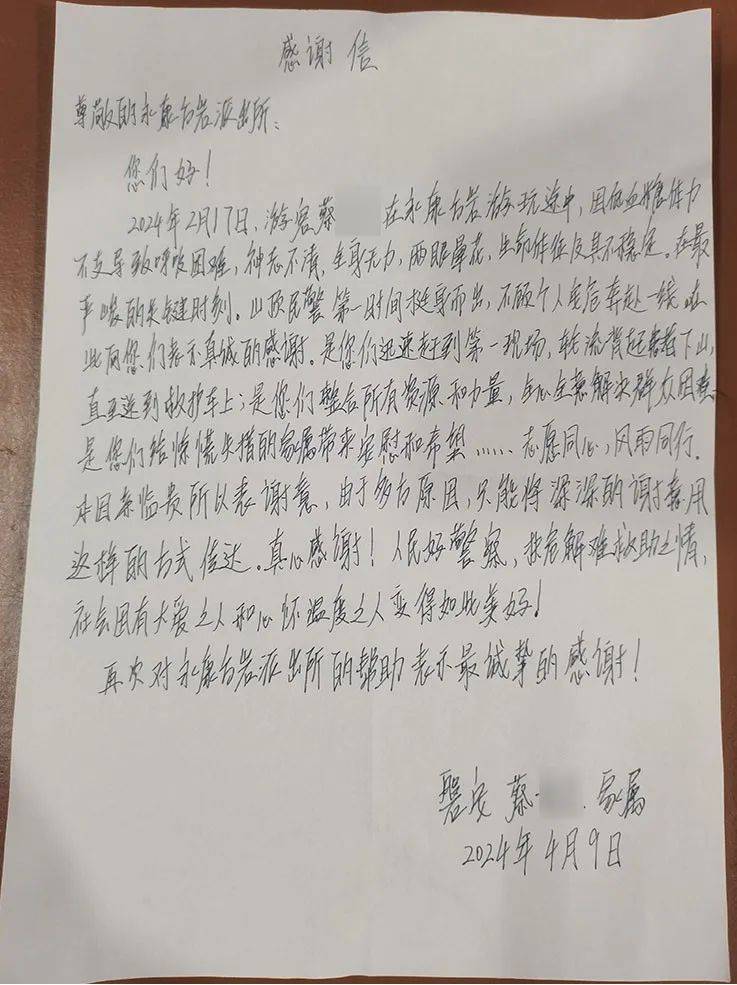 感谢信
尊敬的永康方岩派出所:
您们好!
2024年2月17日,游客蔡 在永康方岩游玩途中,因低血糖体力
不支导致呼吸困难,神志不清,全身无力,两眼晕花,生命体征及其不稳定。在最
严峻的关键时刻。山顶民警第一时间挺身而出,不顾个人安危奔赴一线,在
此向您们表示真诚的感谢。是您们迅速赶到第一现场,轮流背起患者下山,
直至送到救护车上;是您们整合所有资源和力量,全心全意解决群众困难
是您们给惊慌失措的家属带来安慰和希望……志愿同心,风雨同行.
本因亲临贵所以表谢意,由于多方原因,只能将深深的谢意用
这样的方式传达。真心感谢!人民好警察,扶危解难救助之情,
社会因有大爱之人和心怀温度之人变得如此美好!
再次对永康方岩派出所的帮助表示最诚挚的感谢!
磐安 蔡 家属
2024年4月9日